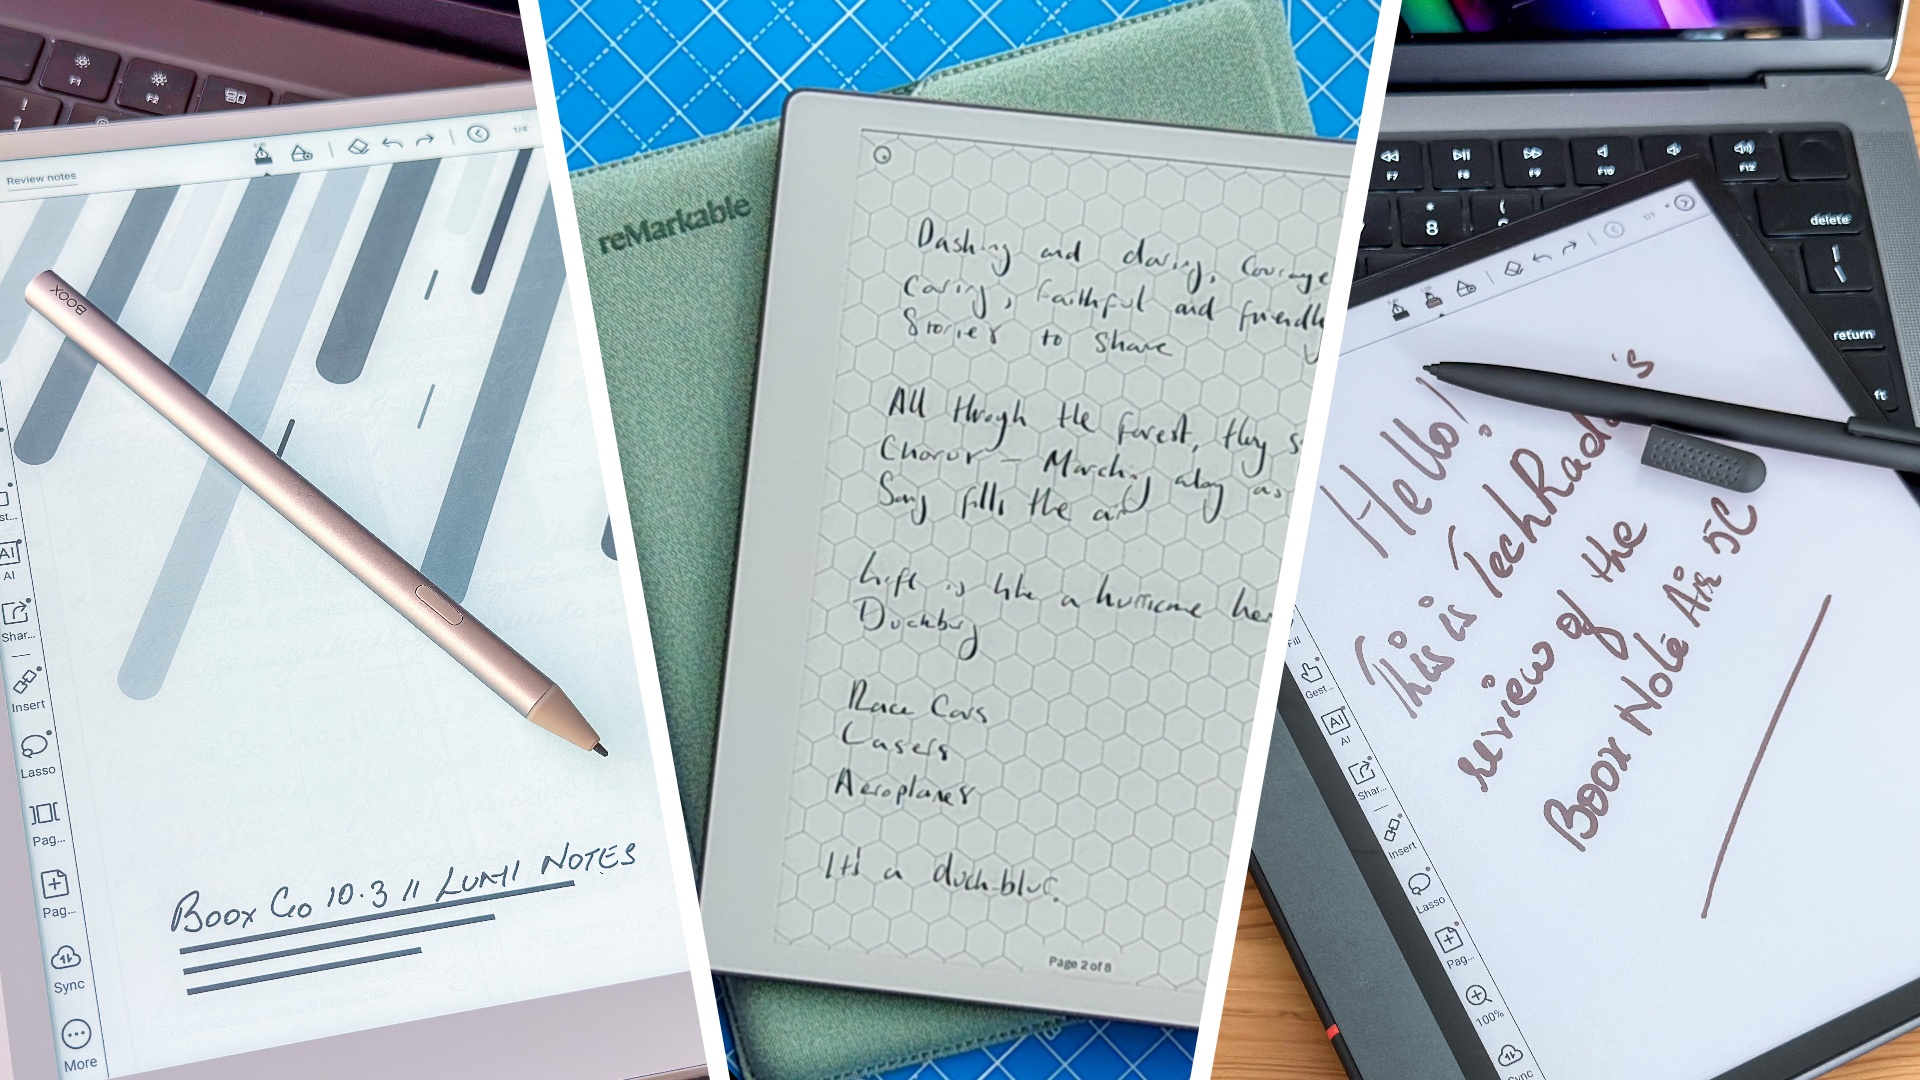 F1
F2
!
Review notes
BOOX
st...
AI
AI
Shar...
Insert
Lasso
Pag...
Pag...
Sync
More
Boox Go 10.3 II LUMI NOTES
reMarkable
Dashing and daring, Courage
Caring, faithful and friendl
Stories to share
All through the forest, they s
Chorus - Marching along as
Song fills the air
Life is like a hurricane her
Duckburg
Race Cars
Lasers
Aeroplanes
It's a duck-blur.
Page 2 of 8
F7
F8
F9
F10
F12
*
8
(
delete
return
Hello!
This is TechRadar's
review of the
Boox Note Air 5C
Fill
Gest...
AI
AI
Shar...
Insert
Lasso
Pag...
100%
Sync